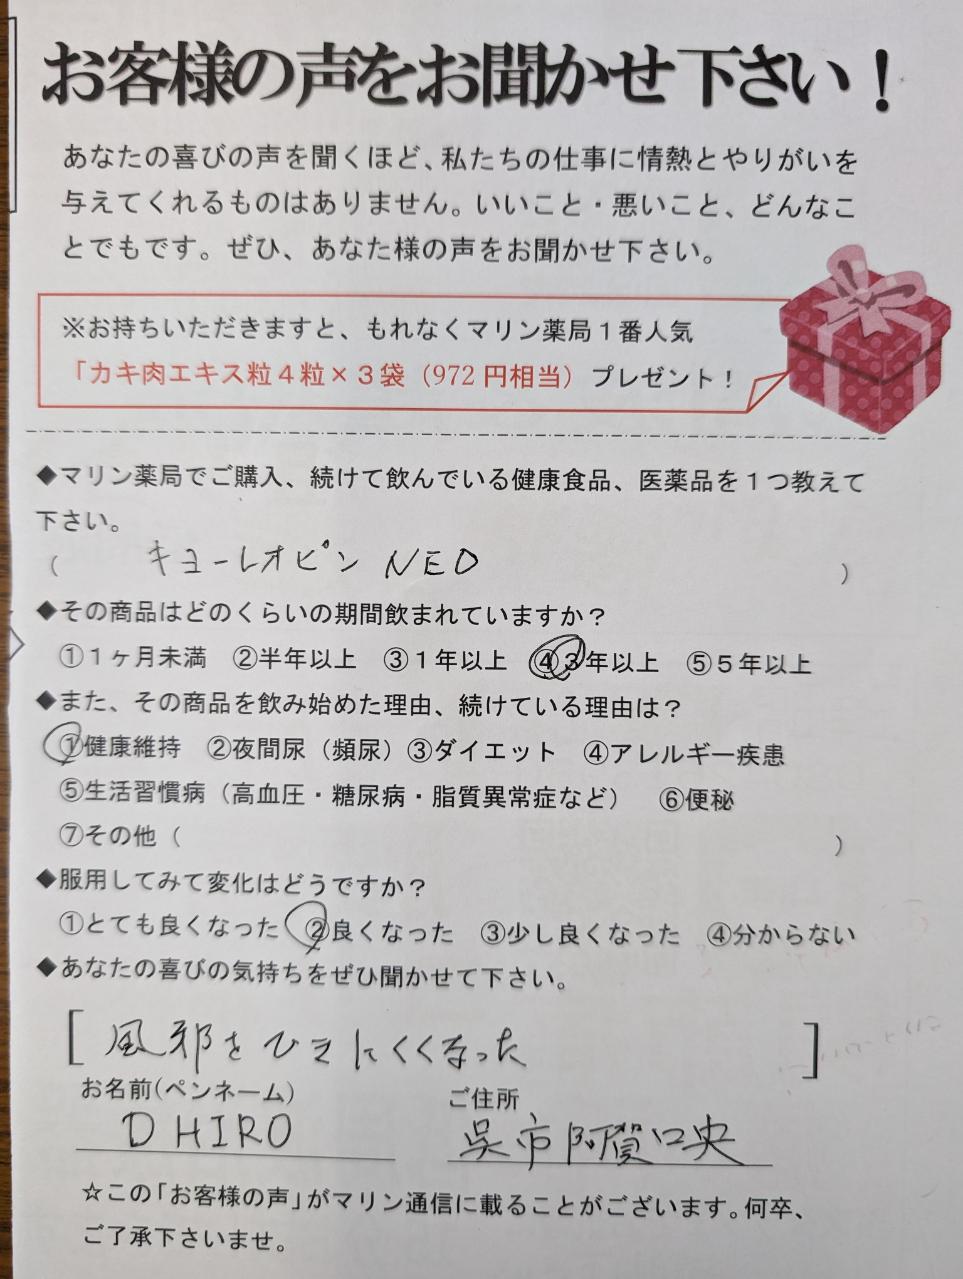 お客様の声をお聞かせ下さい！
あなたの喜びの声を聞くほど、私たちの仕事に情熱とやりがいを
与えてくれるものはありません。いいこと・悪いこと、どんなこ
とでもです。ぜひ、あなた様の声をお聞かせ下さい。
※お持ちいただきますと、もれなくマリン薬局１番人気
「カキ肉エキス粒４粒×３袋（972 円相当） プレゼント！
◆マリン薬局でご購入、続けて飲んでいる健康食品、医薬品を１つ教えて
下さい。
（ キヨーレオピン NEO ）
◆その商品はどのくらいの期間飲まれていますか？
①１ヶ月未満 ②半年以上 ③１年以上 ④３年以上 ⑤５年以上
◆また、その商品を飲み始めた理由、続けている理由は？
①健康維持 ②夜間尿（頻尿）③ダイエット ④アレルギー疾患
⑤生活習慣病（高血圧・糖尿病・脂質異常症など） ⑥便秘
⑦その他（ ）
◆服用してみて変化はどうですか？
①とても良くなった ②良くなった ③少し良くなった ④分からない
◆あなたの喜びの気持ちをぜひ聞かせて下さい。
[ 風邪をひきにくくなった ]
お名前(ペンネーム) ご住所
D HIRO 呉市阿賀中央
☆この「お客様の声」がマリン通信に載ることがございます。何卒、
ご了承下さいませ。